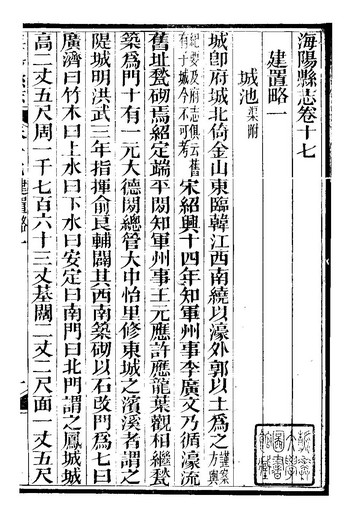 海陽縣志卷十七
建置略一
城池 渠附
城卽府城北倚金山東臨韓江西南繞以濠外郭以土爲之 謹案方輿
紀要及府志俱云舊有子城今不可考 宋紹興十四年知軍州事李廣文乃循濠流
舊址甃砌焉紹定端平間知軍州事王元應許應龍葉觀相繼甃
築爲門十有一元大德間總管大中怡里修東城之濱溪者謂之
隄城明洪武三年指揮俞良輔闢其西南築砌以石改門爲七曰
廣濟曰竹木曰上水曰下水曰安定曰南門曰北門謂之鳳城城
高二丈五尺周一千七百六十三丈基闊二丈二尺面一丈五尺